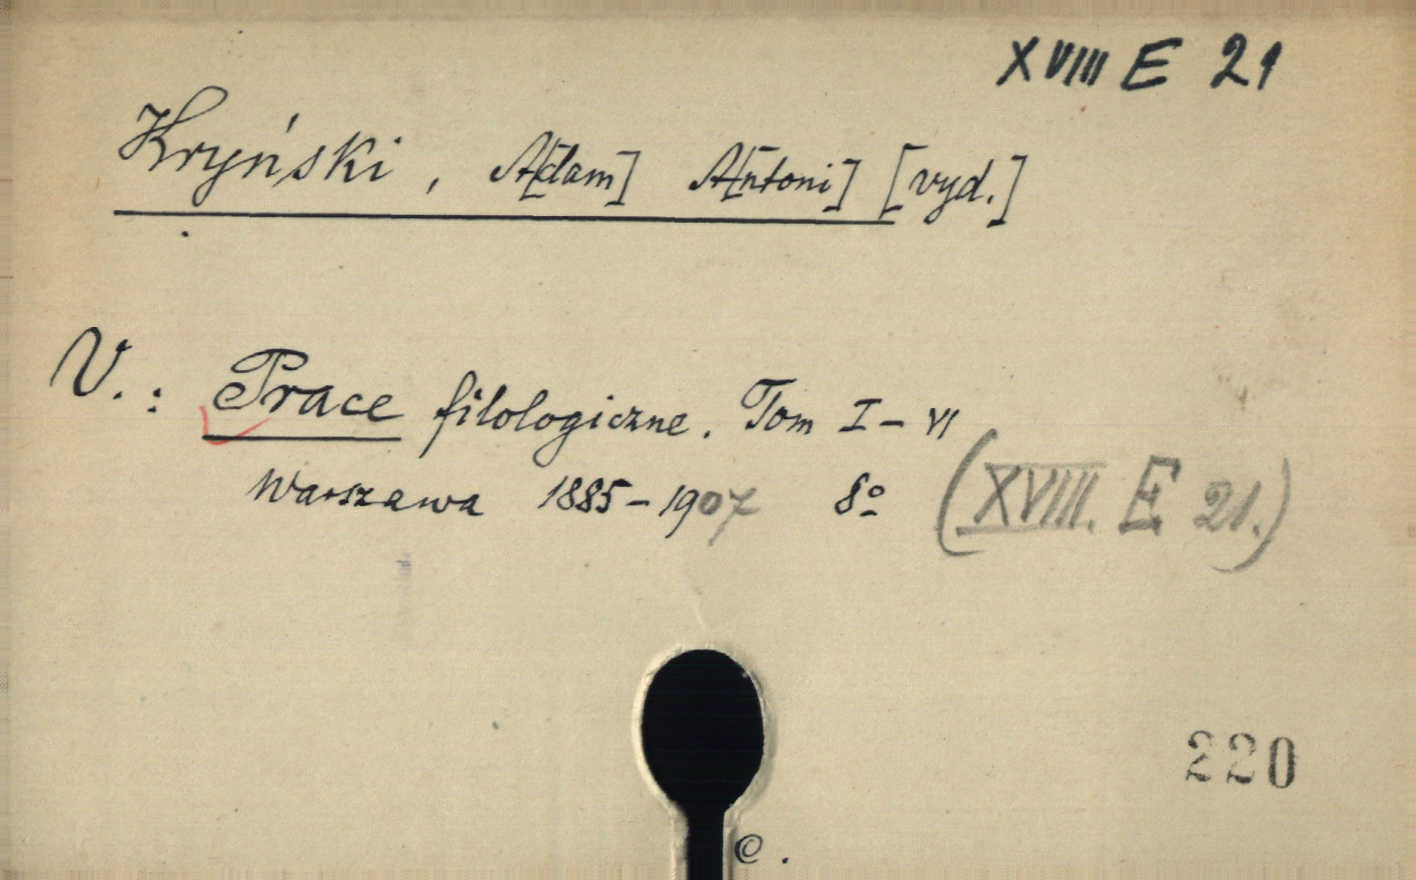 XVIII E 21
Kryński, A[dam] A[ntoni] [vyd.]
V.: Prace filologiczne. Tom I - VI
Warszawa 1885 - 1907 8º (XVIII. E 21.)
220
C.